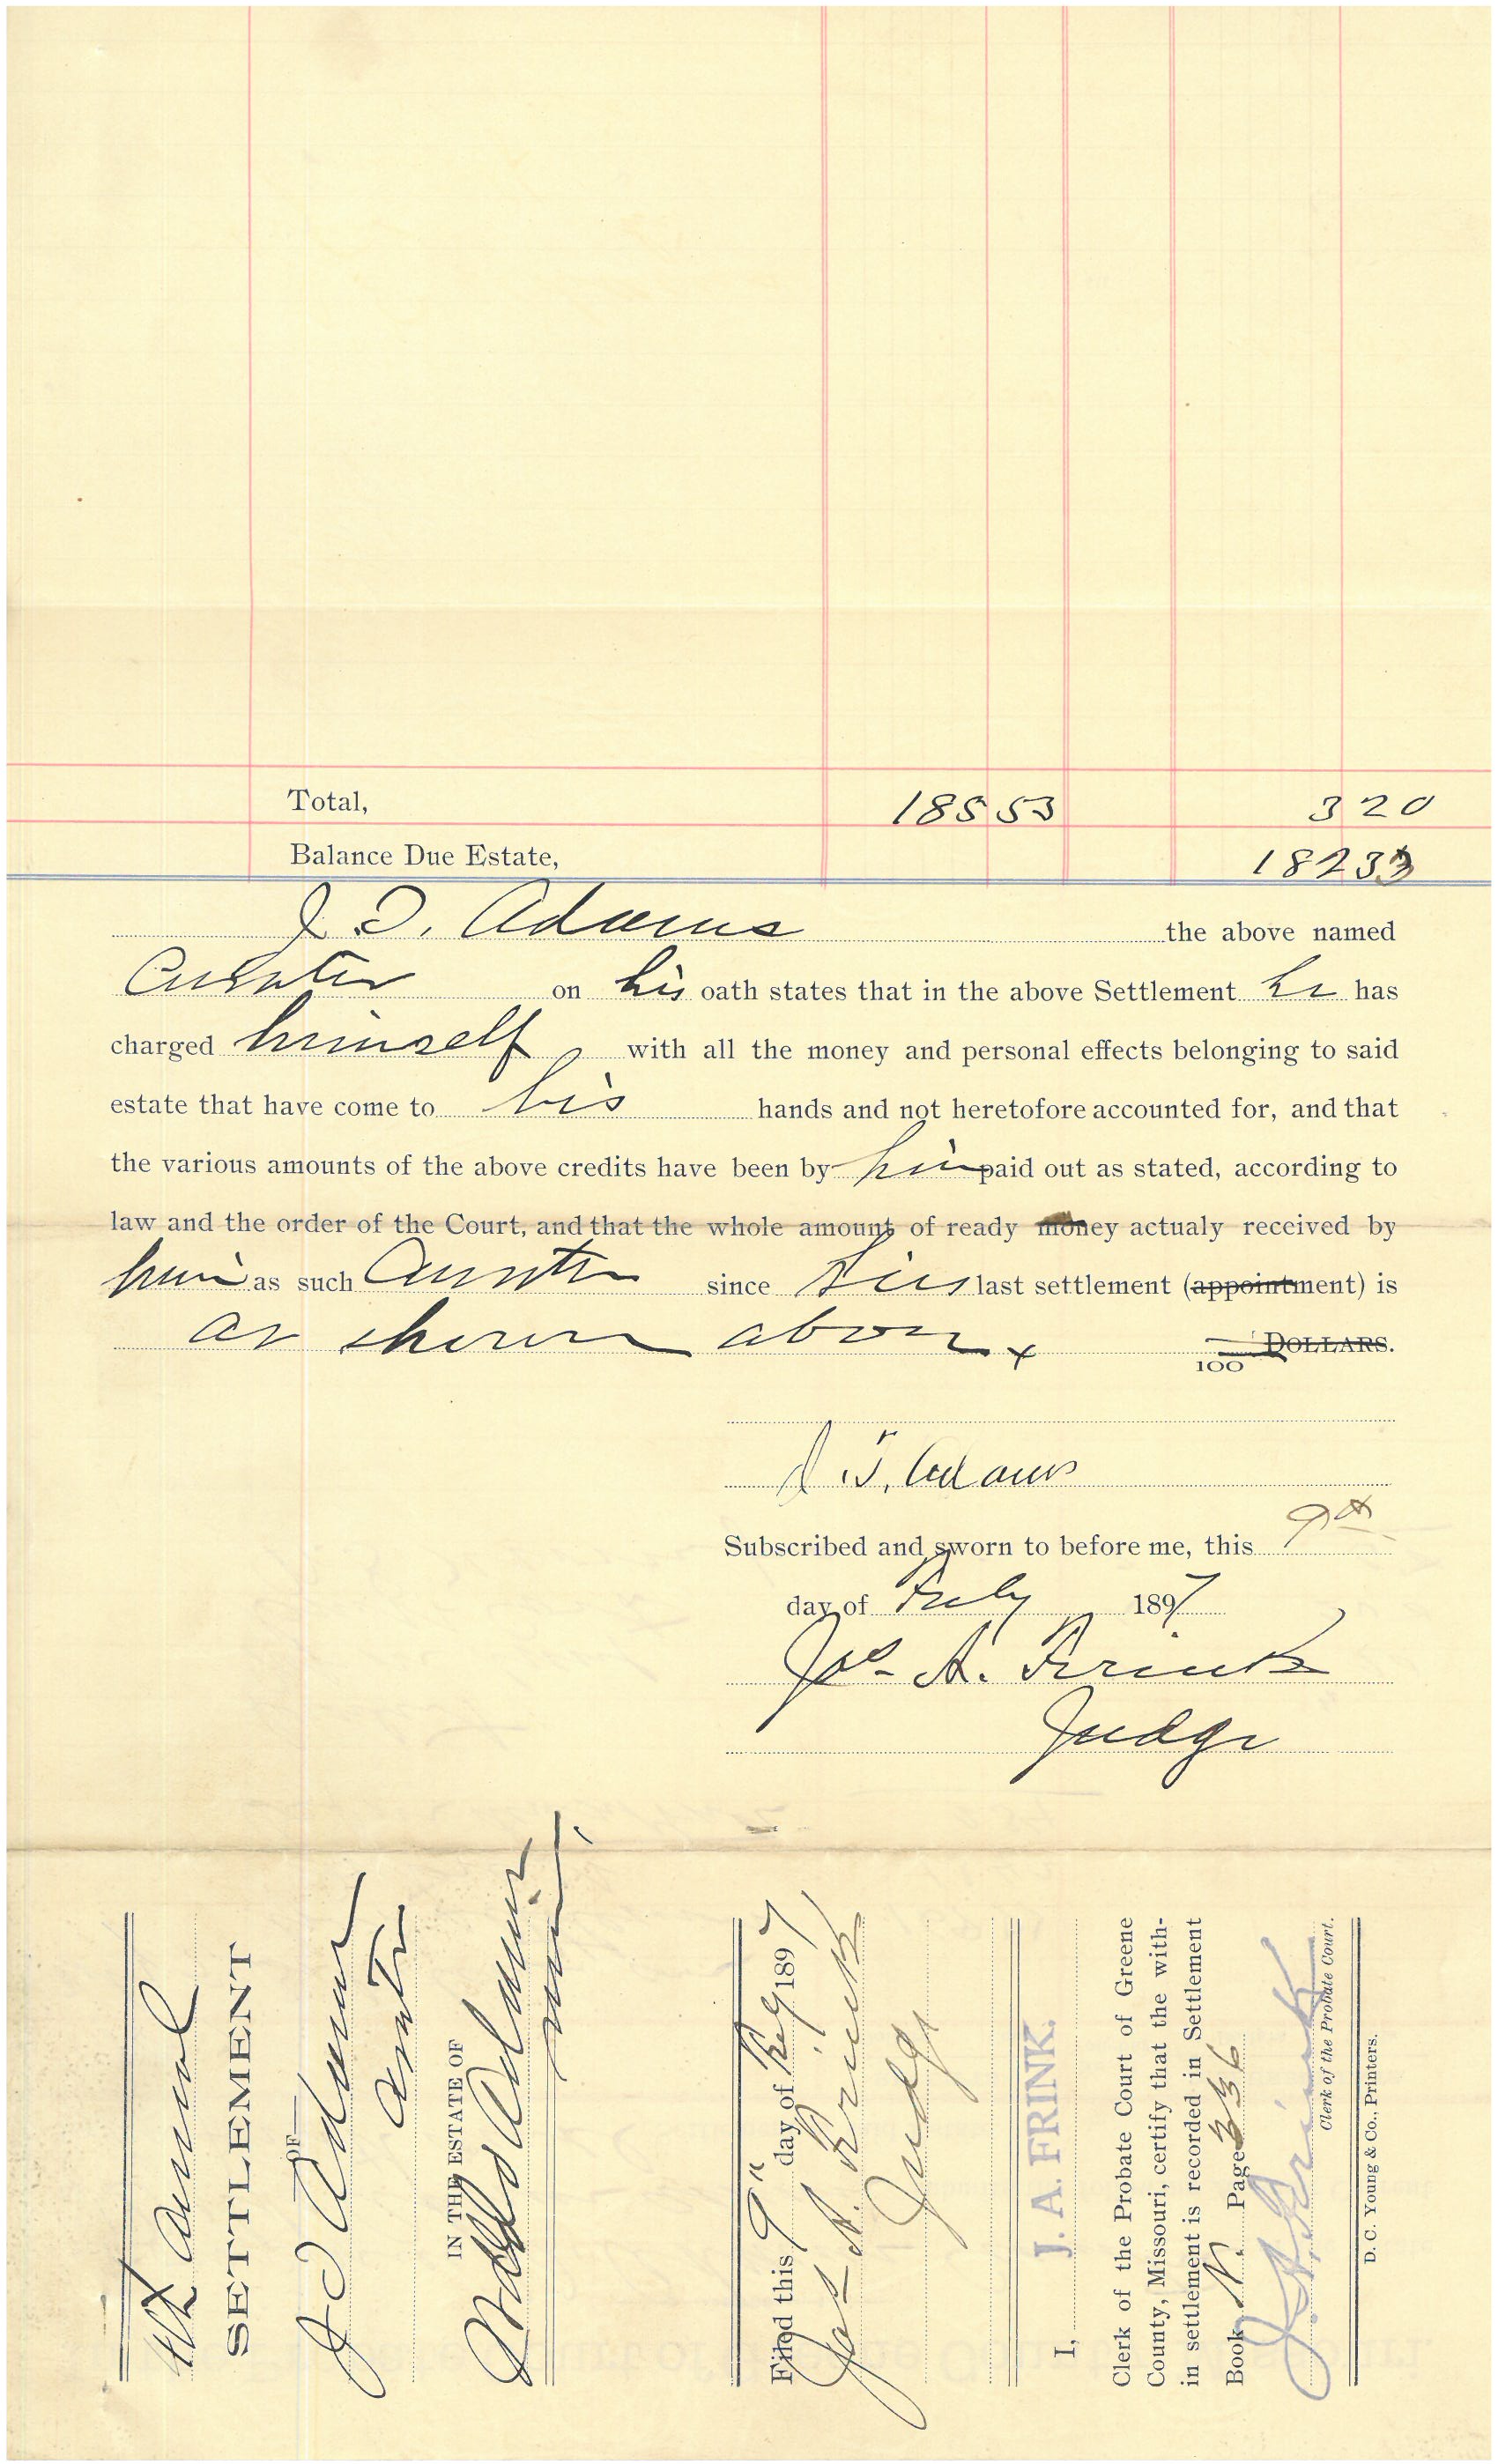 Total, 185 53 3 20
Balance Due Estate, 182 33
J. T. Adams the above named
Curator on his oath states that in the above Settlement he has
charged himself with all the money and personal effects belonging to said
estate that have come to his hands and not heretofore accounted for, and that
the various amounts of the above credits have been by him paid out as stated, according to
law and the order of the Court, and that the whole amount of ready money actualy received by
him as such Curator since his last settlement (appointment) is
as shown above
100 DOLLARS.
J. T. Adams
Subscribed and sworn to before me, this 9th
day of July 1897
Jos. A. Frink
Judge
4th Annual
SETTLEMENT
OF
J T Adams
Curtr
IN THE ESTATE OF
Adams
minor
Filed this 9" day of July 1897
Jas A. Frink
Judge
I, J. A. FRINK.
Clerk of the Probate Court of Greene
County, Missouri, certify that the with-
in settlement is recorded in Settlement
Book N. Page 336
J. A. Frink
Clerk of the Probate Court.
D. C. Young & Co., Printers.